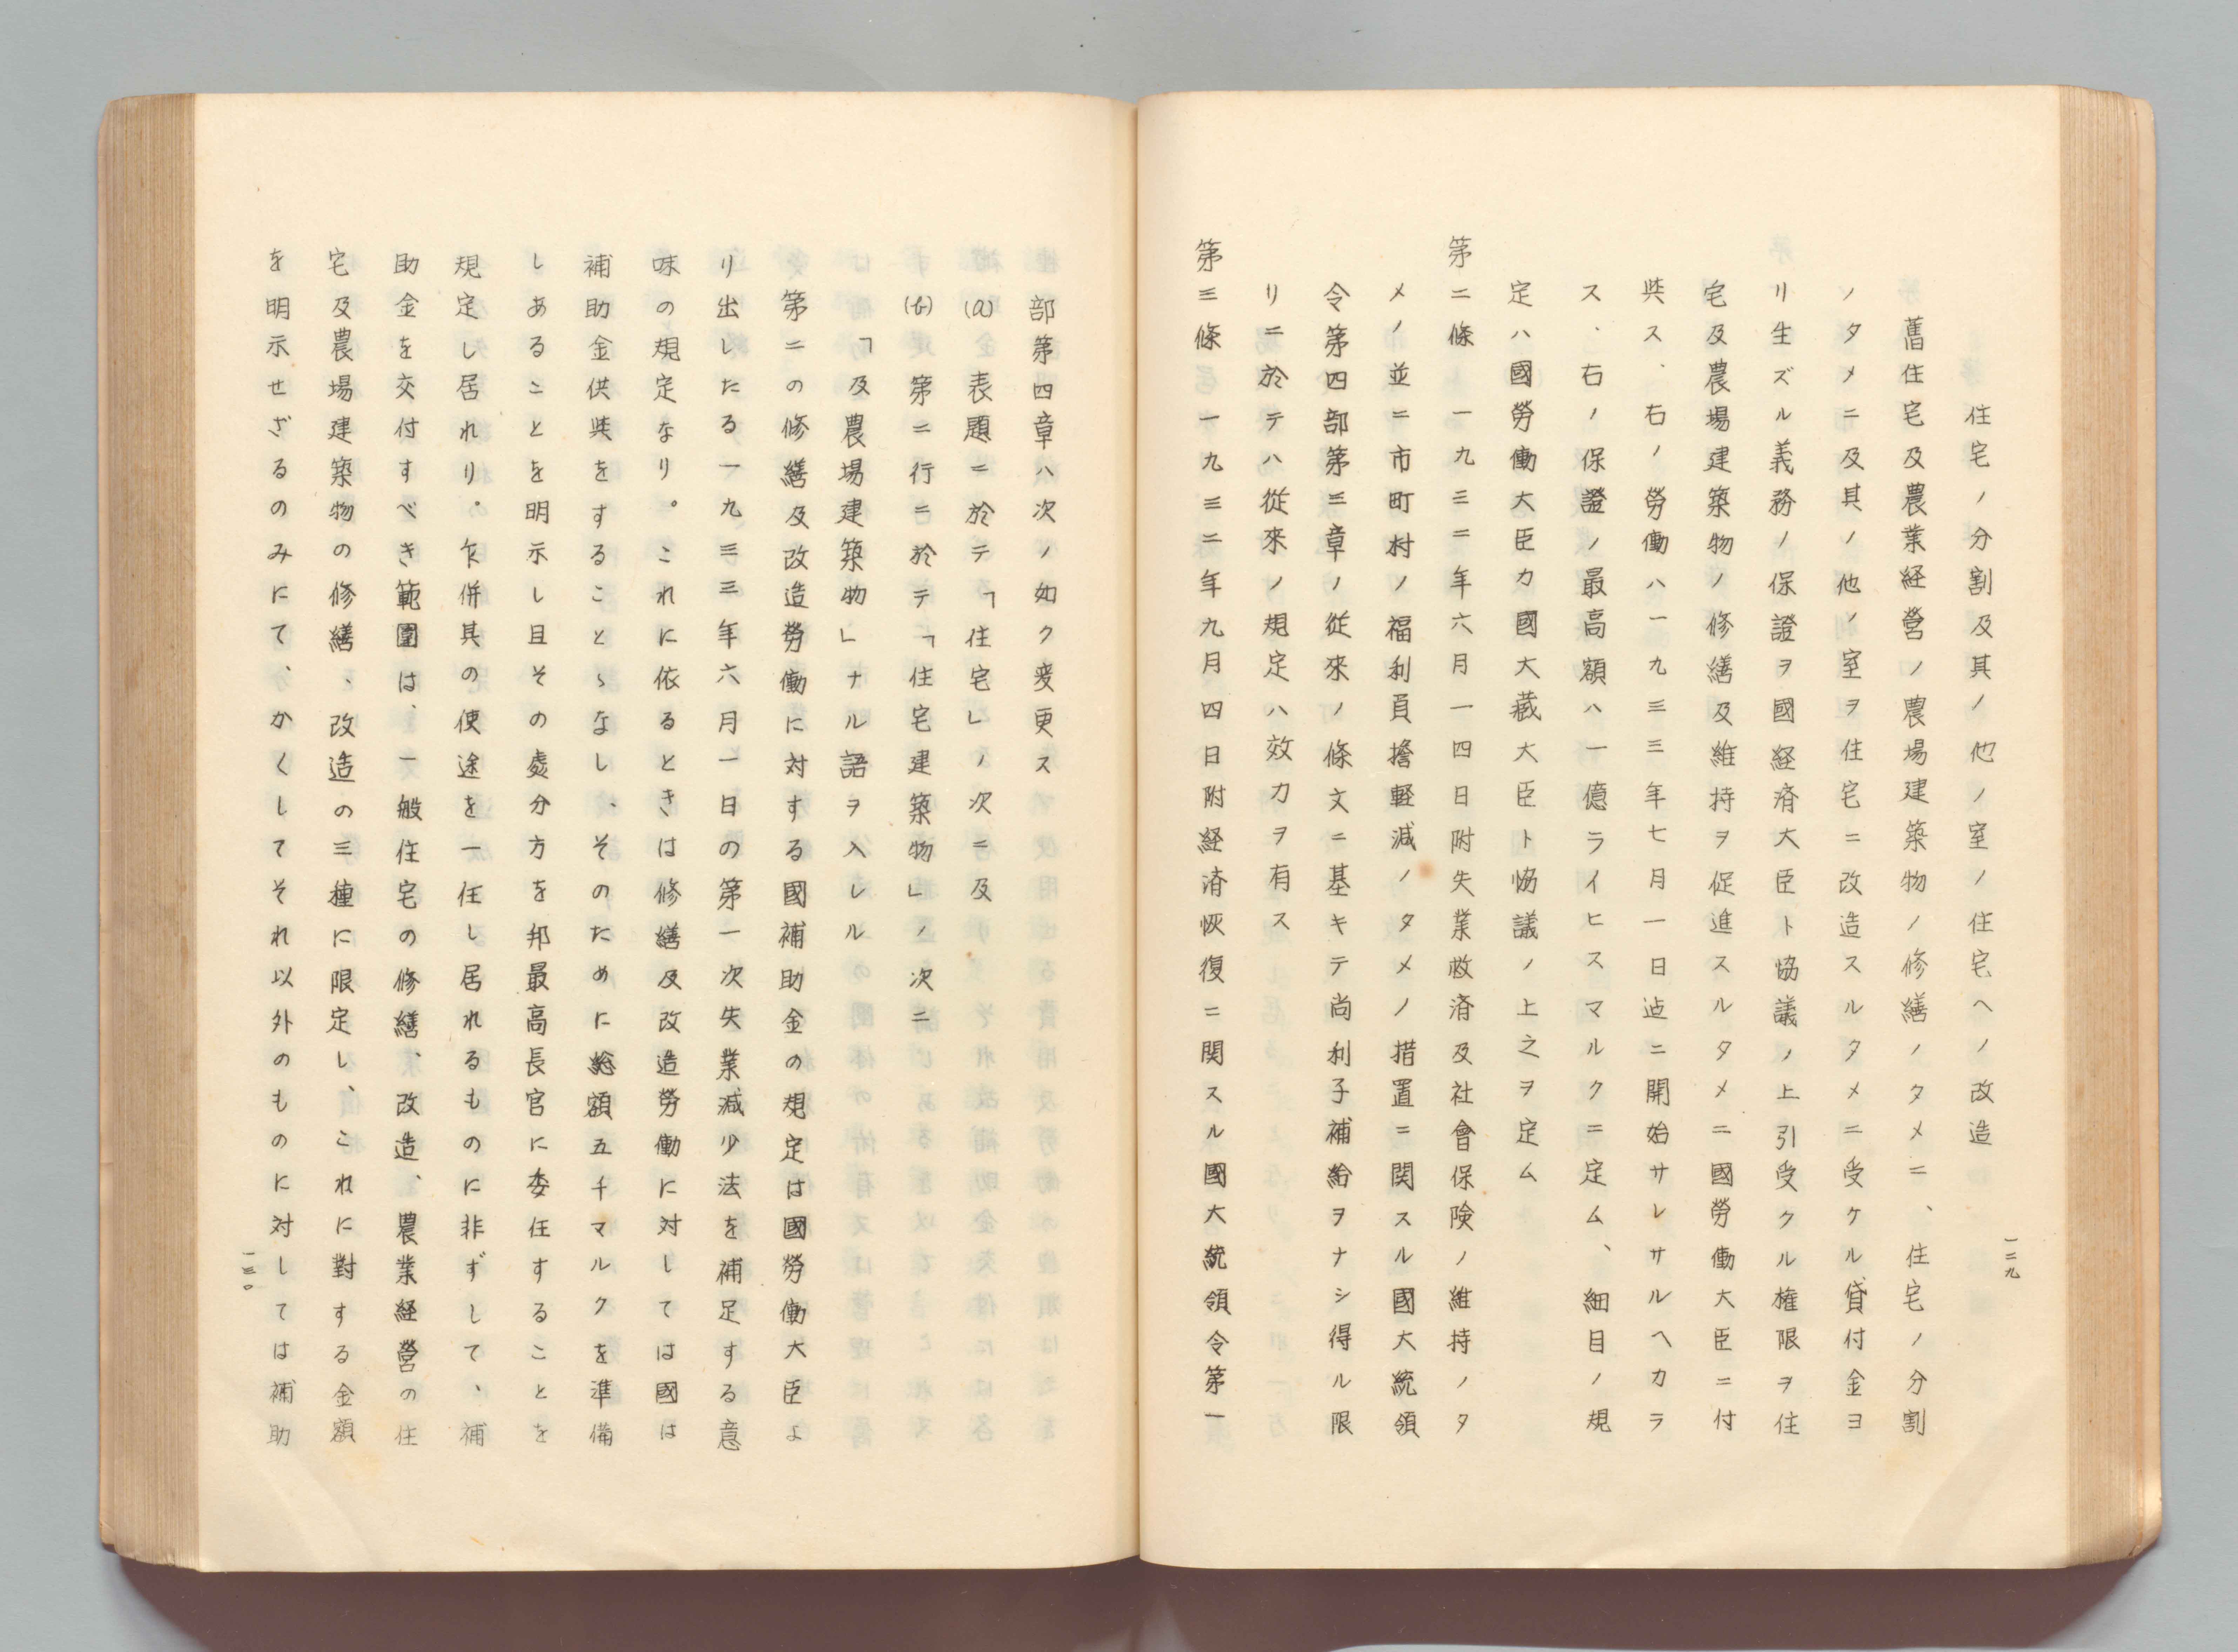 住宅ノ分割及其ノ他ノ室ノ住宅ヘノ改造
舊住宅及農業経營ノ農場建築物ノ修繕ノタメニ、住宅ノ分割
ノタメニ及其ノ他ノ室ヲ住宅ニ改造スルタメニ受ケル貸付金ヨ
リ生ズル義務ノ保證ヲ國経済大臣ト協議ノ上引受クル権限ヲ住
宅及農場建築物ノ修繕及維持ヲ促進スルタメニ國勞働大臣ニ付
與ス、右ノ勞働ハ一九三三年七月一日迠ニ開始サレサルヘカラ
ス、右ノ保證ノ最高額ハ一億ライヒスマルクニ定ム、細目ノ規
定ハ國勞働大臣カ國大藏大臣ト恊議ノ上之ヲ定ム
第二條　一九三二年六月一四日附失業救済及社會保険ノ維持ノタ
メノ並ニ市町村ノ福利負擔軽減ノタメノ措置ニ関スル國大統領
令第四部第三章ノ從來ノ條文ニ基キテ尚利子補給ヲナシ得ル限
リニ於テハ從來ノ規定ハ效力ヲ有ス
第三條　一九三二年九月四日附経済恢復ニ関スル國大統領令第一
一二九
部第四章ハ次ノ如ク変更ス
(a)　表題ニ於テ「住宅」ノ次ニ及
(b)　第二行ニ於テ「住宅建築物」ノ次ニ
「及農場建築物」ナル語ヲ入レル
第二の修繕及改造勞働に対する國補助金の規定は國勞働大臣よ
り出したる一九三三年六月一日の第一次失業減少法を補足する意
味の規定なり。これに依るときは修繕及改造勞働に対しては國は
補助金供與をすることゝなし、そのために総額五千マルクを準備
しあることを明示し且その處分方を邦最高長官に委任することを
規定し居れり。乍併其の使途を一任し居れるものに非ずして、補
助金を交付すべき範圍は、一般住宅の修繕、改造、農業経營の住
宅及農場建築物の修繕、改造の三種に限定し、これに對する金額
を明示せざるのみにて、かくしてそれ以外のものに対しては補助
一三〇